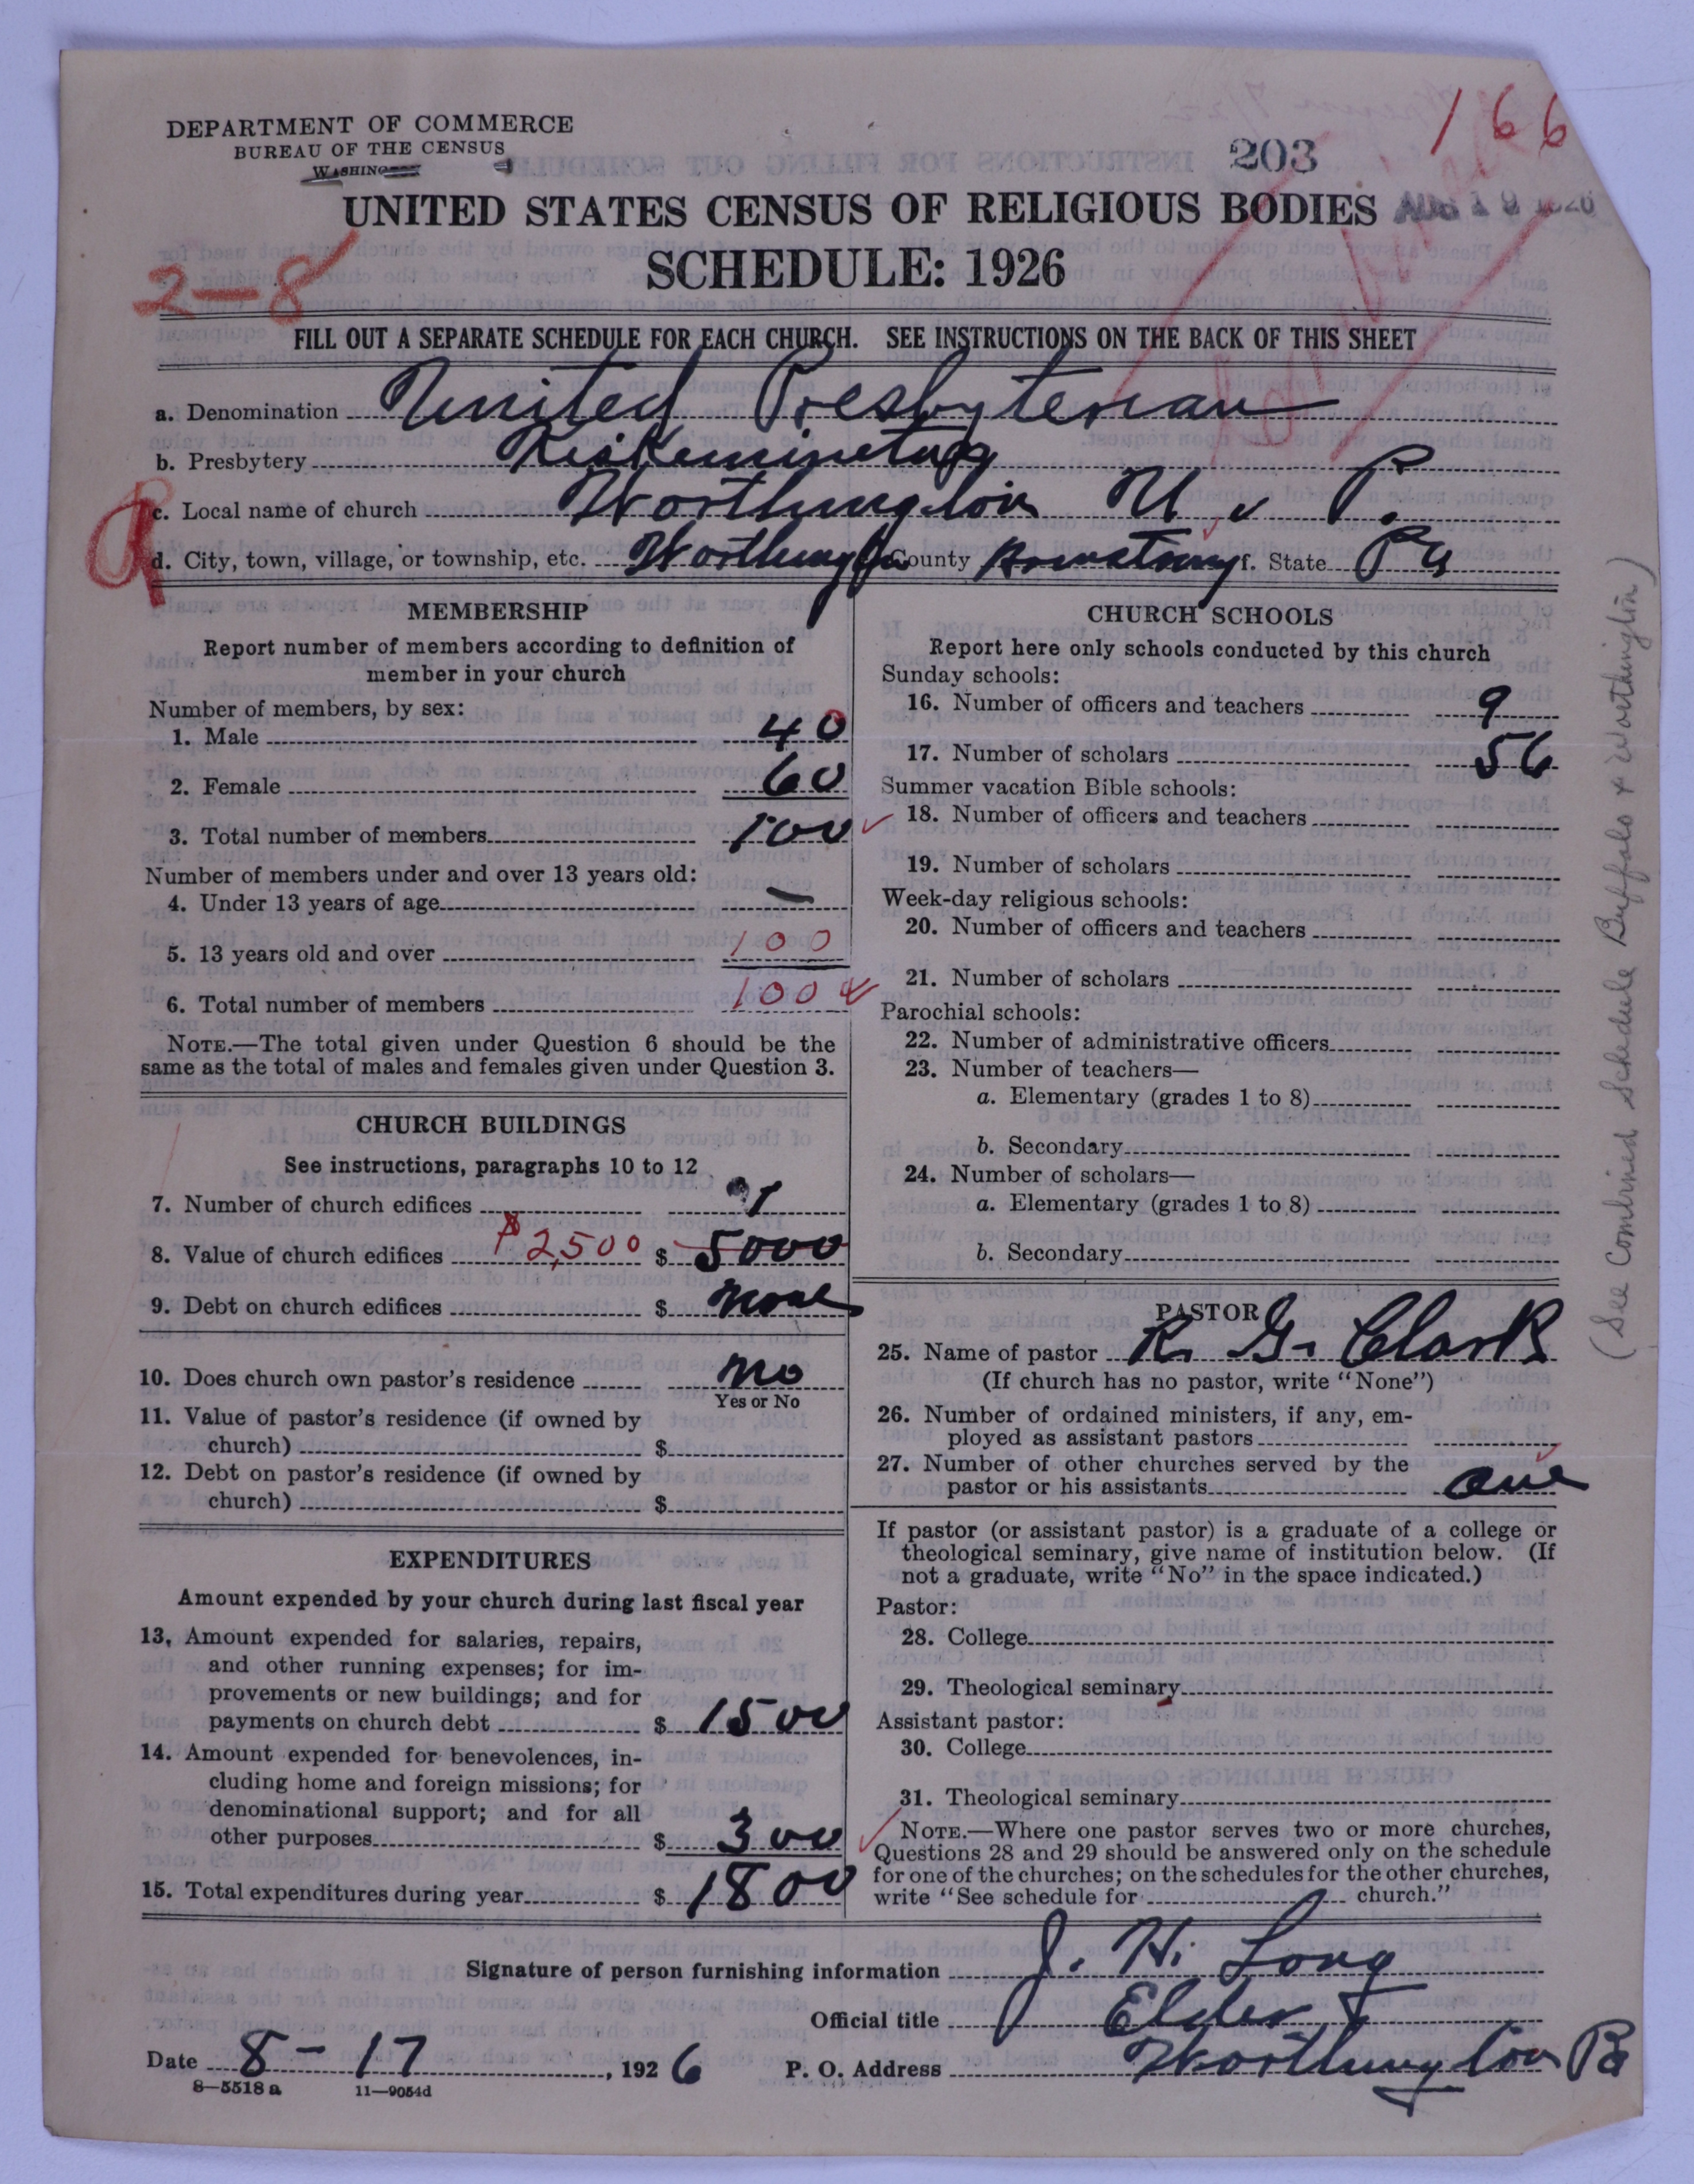 166
DEPARTMENT OF COMMERCE
BUREAU OF THE CENSUS
WASHINGTON
203
UNITED STATES CENSUS OF RELIGIOUS BODIES
AUG 19 1926
SCHEDULE: 1926
2-8
FILL OUT A SEPARATE SCHEDULE FOR EACH CHURCH. SEE INSTRUCTIONS ON THE BACK OF THIS SHEET
a. Denomination United Presbyterian
b. Presbytery Kiskiminetas
c. Local name of church Worthington U. P.
d. City, town, village, or township, etc. Worthington County Armstrong f. State Pa
MEMBERSHIP
Report number of members according to definition of
member in your church
Number of members, by sex:
1. Male 40
2. Female 60
3. Total number of members 100
Number of members under and over 13 years old:
4. Under 13 years of age —
5. 13 years old and over 100
6. Total number of members 100
NOTE.—The total given under Question 6 should be the
same as the total of males and females given under Question 3.
CHURCH BUILDINGS
See instructions, paragraphs 10 to 12
7. Number of church edifices 1
8. Value of church edifices $2,500 $ 5000
9. Debt on church edifices $ none
10. Does church own pastor's residence no
Yes or No
11. Value of pastor's residence (if owned by
church) $
12. Debt on pastor's residence (if owned by
church) $
EXPENDITURES
Amount expended by your church during last fiscal year
13. Amount expended for salaries, repairs,
and other running expenses; for im-
provements or new buildings; and for
payments on church debt $ 1500
14. Amount expended for benevolences, in-
cluding home and foreign missions; for
denominational support; and for all
other purposes $ 300
15. Total expenditures during year $ 1800
CHURCH SCHOOLS
Report here only schools conducted by this church
Sunday schools:
16. Number of officers and teachers 9
17. Number of scholars 56
Summer vacation Bible schools:
18. Number of officers and teachers
19. Number of scholars
Week-day religious schools:
20. Number of officers and teachers
21. Number of scholars
Parochial schools:
22. Number of administrative officers
23. Number of teachers—
a. Elementary (grades 1 to 8)
b. Secondary
24. Number of scholars—
a. Elementary (grades 1 to 8)
b. Secondary
PASTOR
25. Name of pastor R. G. Clark
(If church has no pastor, write "None")
26. Number of ordained ministers, if any, em-
ployed as assistant pastors
27. Number of other churches served by the
pastor or his assistants one
If pastor (or assistant pastor) is a graduate of a college or
theological seminary, give name of institution below. (If
not a graduate, write "No" in the space indicated.)
Pastor:
28. College
29. Theological seminary
Assistant pastor:
30. College
31. Theological seminary
NOTE.—Where one pastor serves two or more churches,
Questions 28 and 29 should be answered only on the schedule
for one of the churches; on the schedules for the other churches,
write "See schedule for church."
(See Combined Schedule Buffalo & Worthington)
Signature of person furnishing information J. H. Long
Official title Elder
Date 8-17, 1926 P. O. Address Worthington Pa
8—5518a 11—9054d